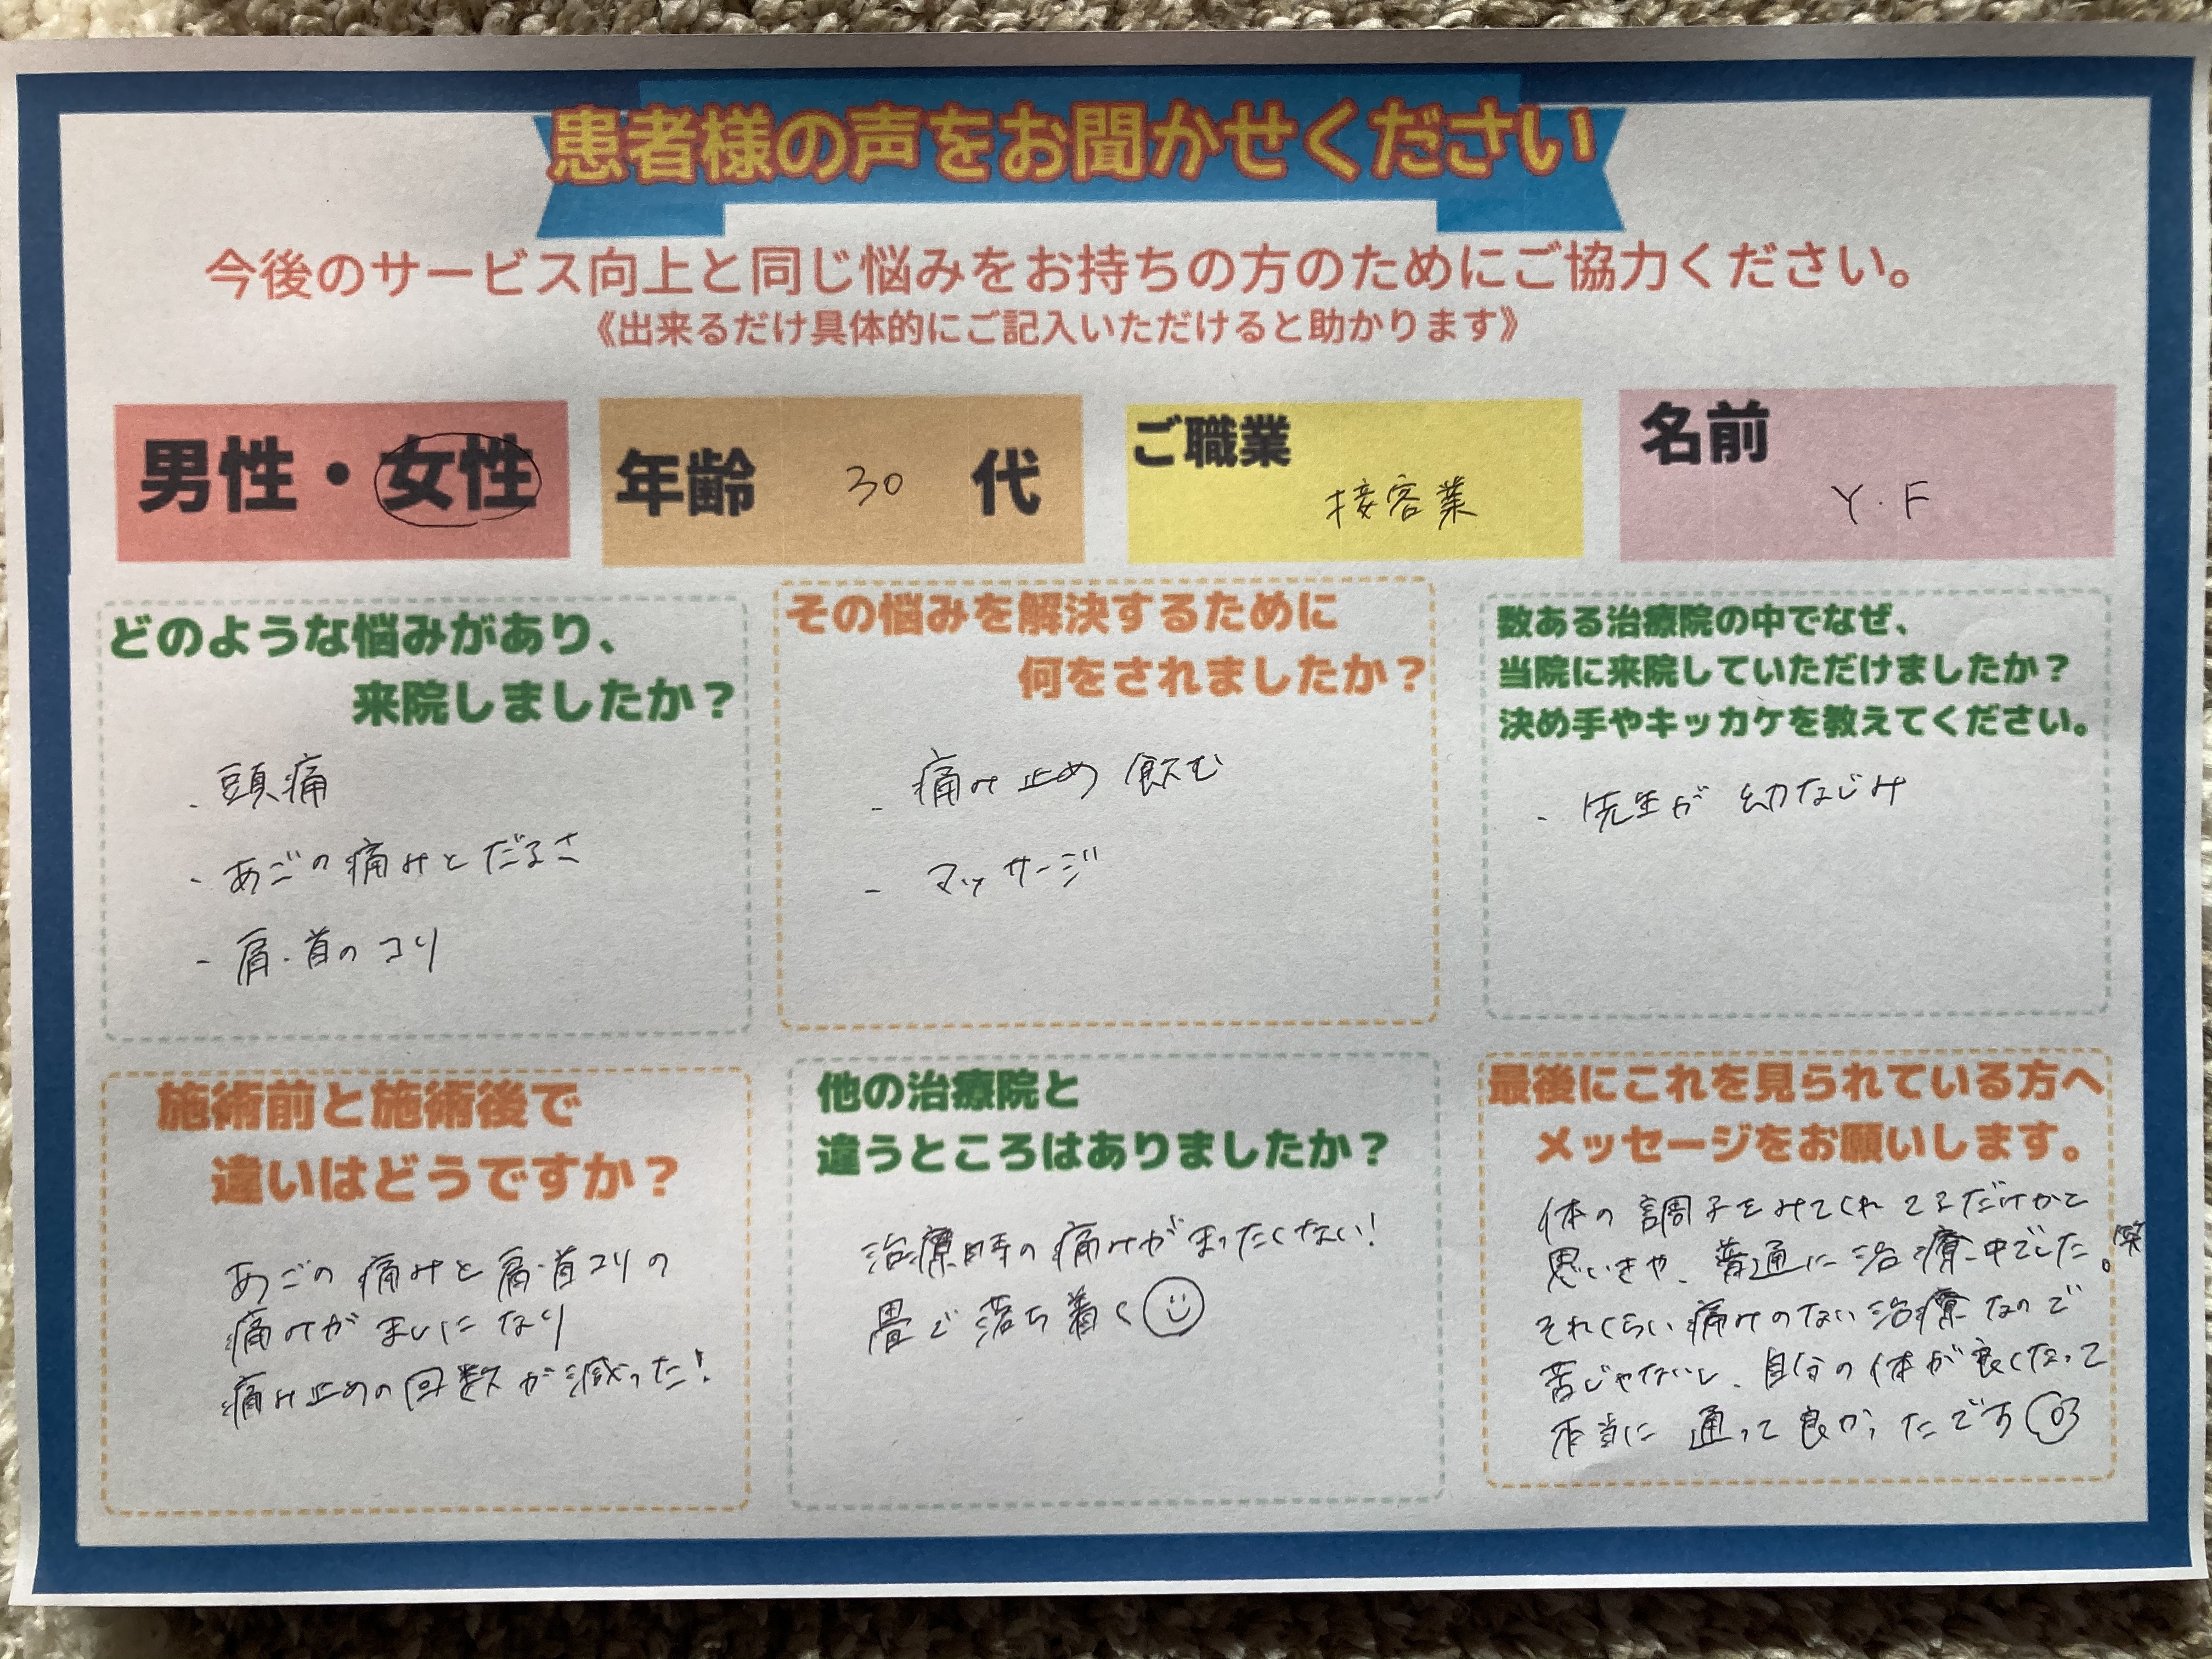 患者様の声をお聞かせください
今後のサービス向上と同じ悩みをお持ちの方のためにご協力ください。
《出来るだけ具体的にご記入いただけると助かります》
男性・女性
年齢 30 代
ご職業
接客業
名前
Y.F
どのような悩みがあり、
来院しましたか？
・頭痛
・あごの痛みとだるさ
・肩・首のコリ
その悩みを解決するために
何をされましたか？
・痛み止め飲む
・マッサージ
数ある治療院の中でなぜ、
当院に来院していただけましたか？
決め手やキッカケを教えてください。
・先生が幼なじみ
施術前と施術後で
違いはどうですか？
あごの痛みと肩・首コリの
痛みがましになり
痛み止めの回数が減った！
他の治療院と
違うところはありましたか？
治療時の痛みがまったくない！
畳で落ち着く
最後にこれを見られている方へ
メッセージをお願いします。
体の調子をみてくれてるだけかと
思いきや、普通に治療中でした。笑
それくらい痛みのない治療なので
苦じゃないし、自分の体が良くなって
本当に通って良かったです